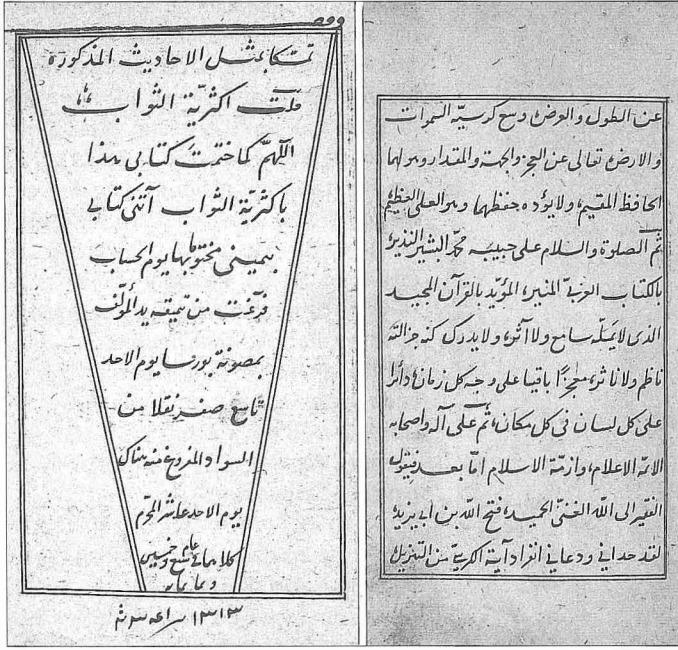 عن الطول والعرض، وسع كرسيّه السموات
والارض، تعالى عن العجز والجهة والمقدار، وهو لهما
الحافظ المقيم، ولا يؤده حفظهما وهو العلى العظيم
ثم الصلوة والسلام على حبيبه محمّد البشير النذير
بالكتاب العربىّ المنير، المؤيّد بالقرآن المجيد
الذى لا يملّه سامع ولا آثر، ولا يدرك كنه جزالته
ناظم ولا ناثر، معجزًا باقيا على وجه كل زمان، دائرا
على كل لسان فى كل مكان، ثم على آله واصحابه
الائمة الاعلام، وازمّة الاسلام امّا بعد فيقول
الفقير الى الله الغنىّ الحميد، فتح الله بن ابى يزيد،
لقد حدانى ودعانى انفراد آية الكرسىّ من التنزيل،
تمسّكا بمثل الاحاديث المذكورة
اكثريّة الثواب
اللّهمّ كما ختمت كتابى هذا
باكثريّة الثواب آتنى كتابى
بيمينى مختوما بها يوم الحساب
فرغت من تنميقه يد المؤلّف
بمصونة بورسا يوم الاحد
تاسع صفر نقلا من
السواد المفروغ منه هناك
يوم الاحد عاشر المحرّم
كلاهما فى عام تسع وخمسين
وثمانمائة
١٣١٣